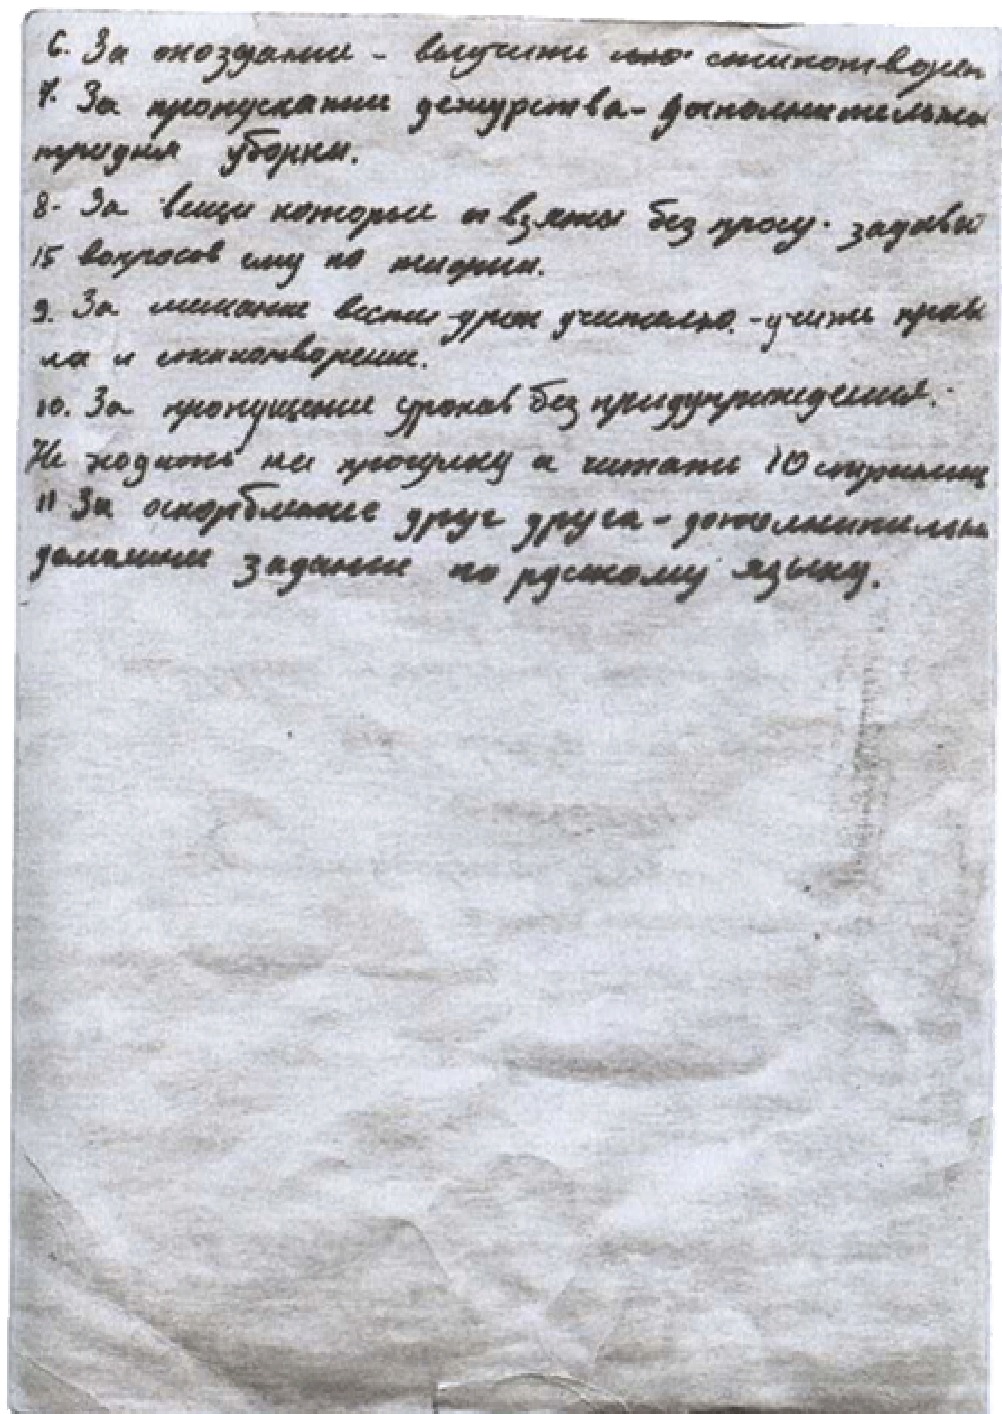 6. За опоздание - выучить стихотворен
7. За пропускание дежурства - дополнительны
тридня уборки.
8. За вещи которые взяты без просу. задавы
15 вопросов ему по теории.
9. За мешание вести урок учителю. - учить прави
ла и стихотворение.
10. За пропущение уроков без придупреждения. -
Не ходить на прогулку и читать 10 страниц
11 За оскорбление друг друга - дополнительны
домашние задание по русскому языку.